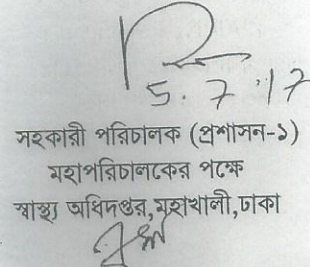 5.7.17
সহকারী পরিচালক (প্রশাসন-১)
মহাপরিচালকের পক্ষে
স্বাস্থ্য অধিদপ্তর,মহাখালী,ঢাকা